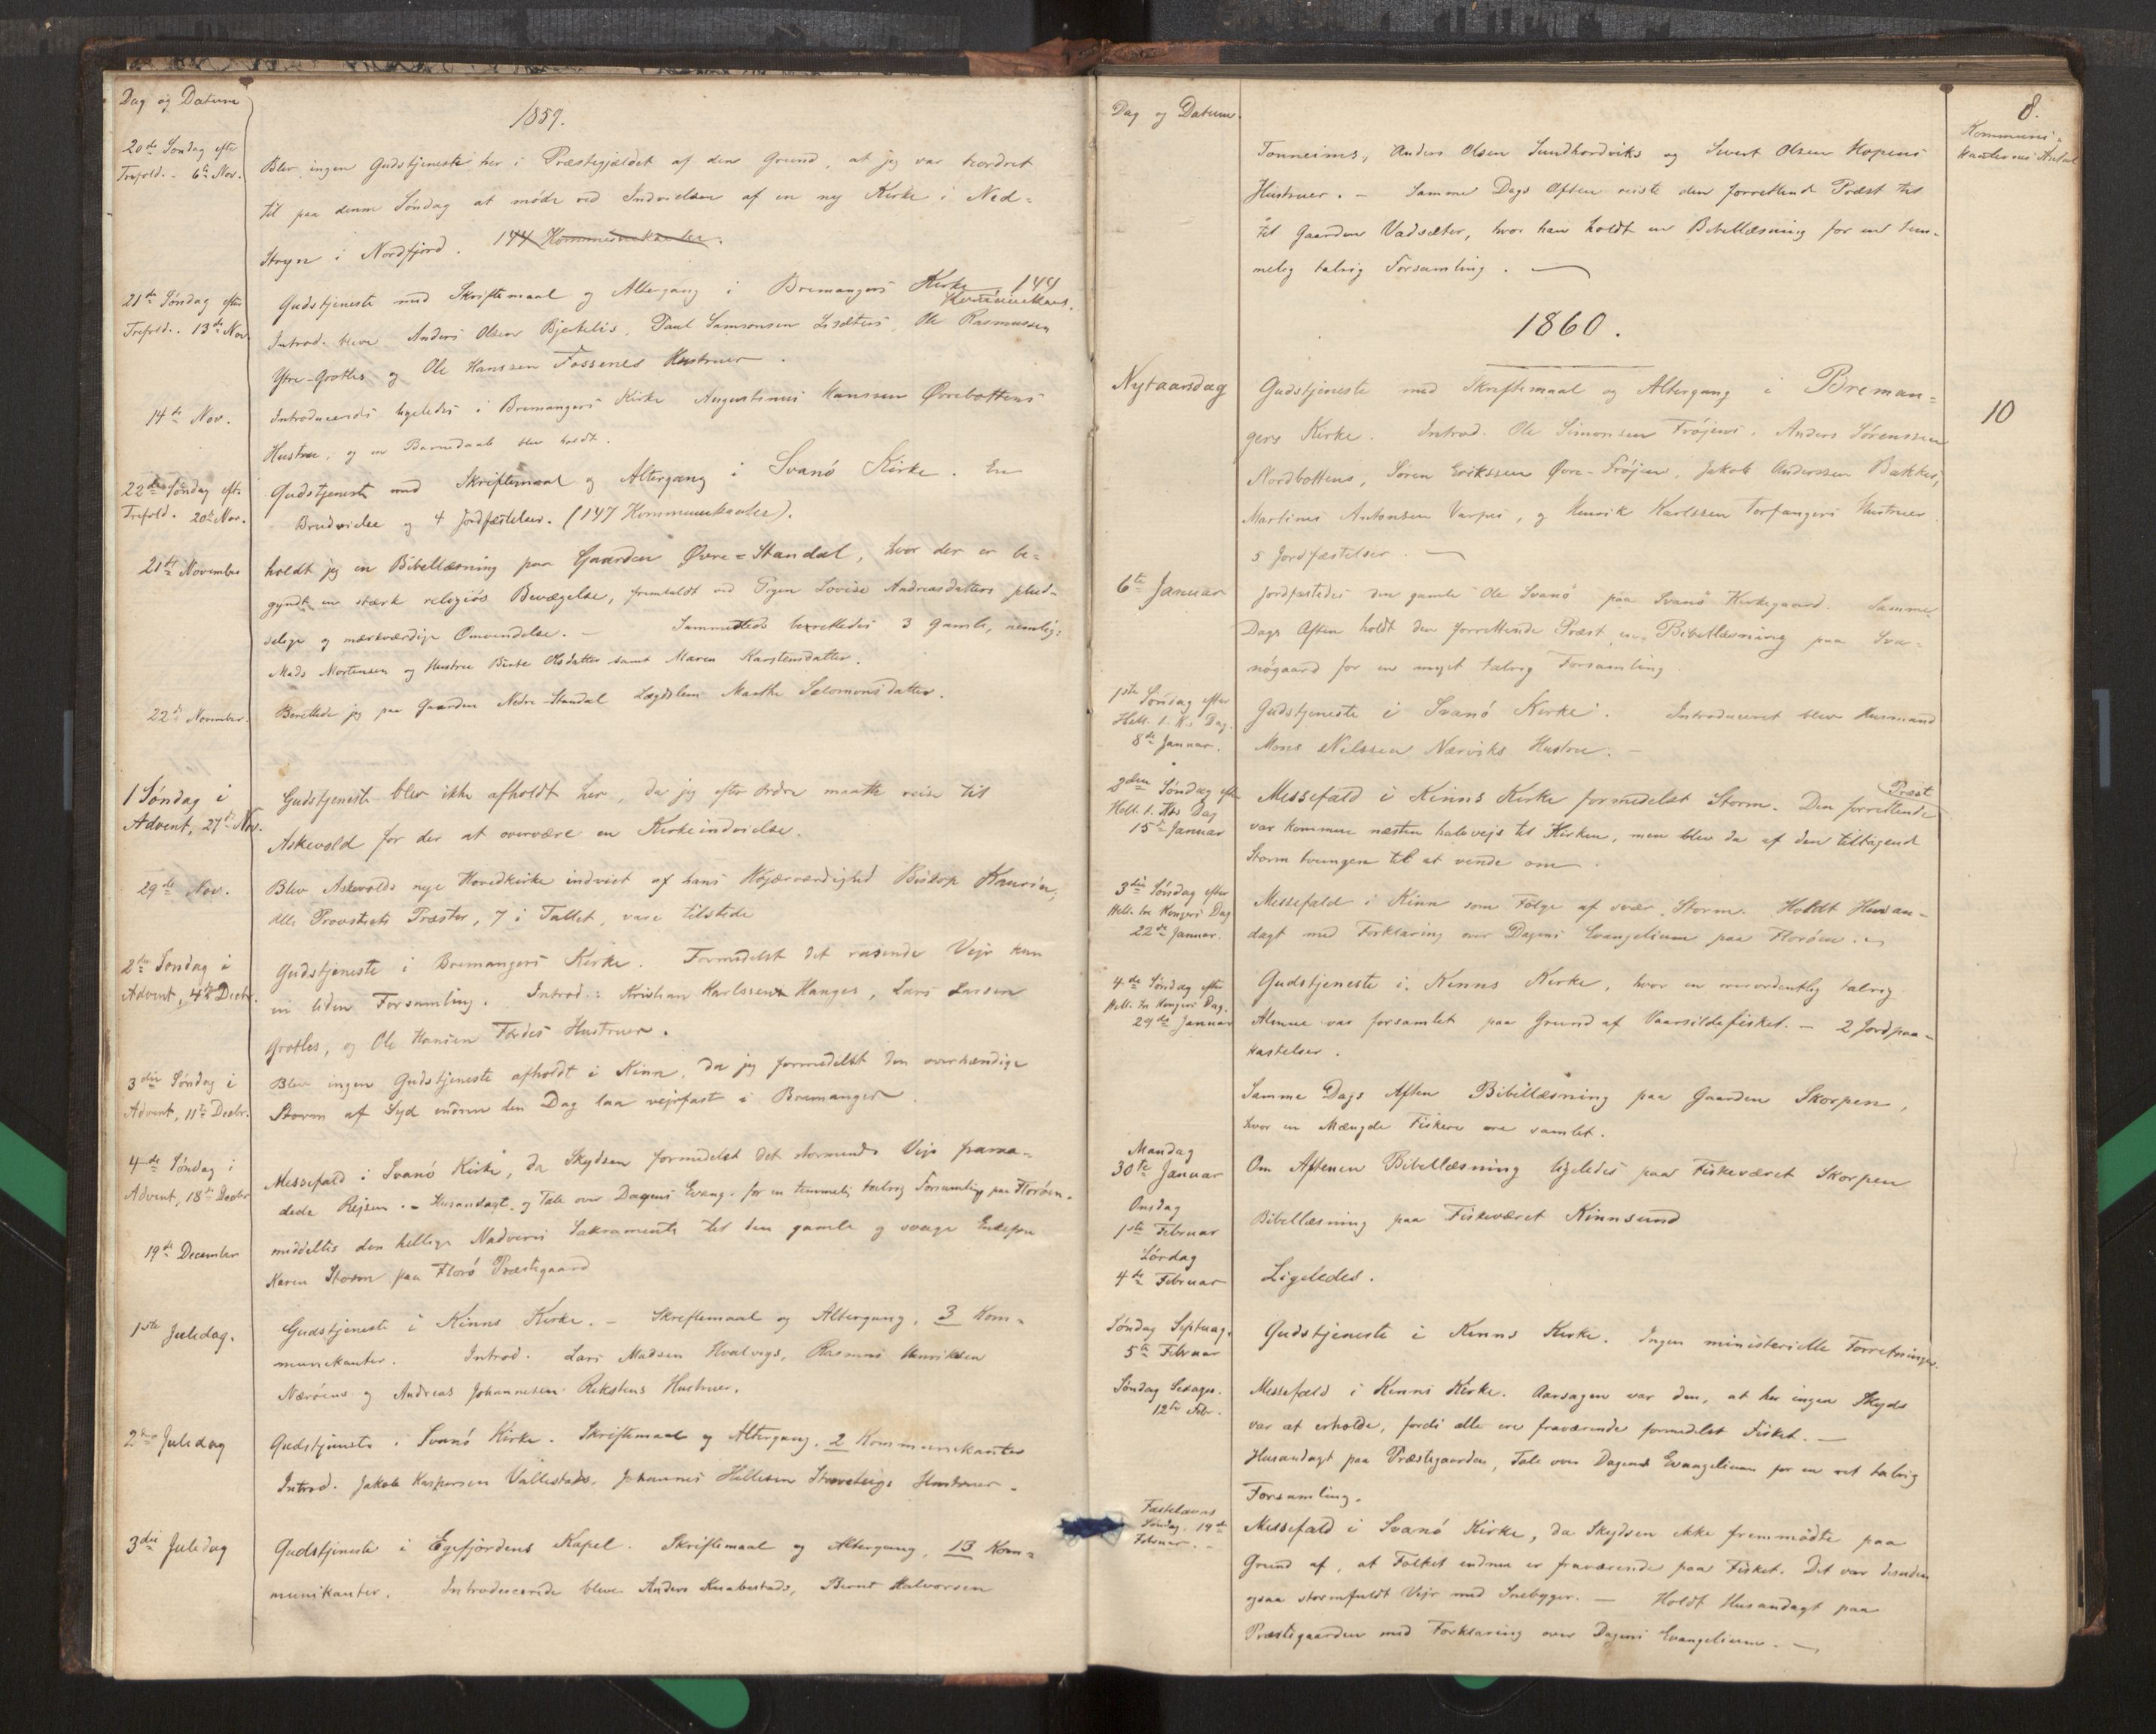 Dag og Datum
1859.
20de Søndag efter
Trefold. - 6te Nov.
Blev ingen Gudstjeneste her i Præstegjældet af den Grund, at jeg var beordret
til paa denne Søndag at møde ved Indvielsen af en ny Kirke i Ned-
Stryn i Nordfjord. 144 Kommunikanter.
21de Søndag efter
Trefold. 13de Nov.
Gudstjeneste med Skriftemaal og Altergang i Bremangers Kirke, 144
Kommunikant.
Introd. bleve Anders Olsen Bjerkelis, Paul Samsonsen Lisæters, Ole Rasmussen
Ytre-Grotles og Ole Hanssen Fossenes Hustruer.
14de Nov.
Introduceredes ligeledes i Bremangers Kirke Augustinus Hanssen Øvrebottens
Hustru, og en Barnedaab blev holdt.
22de Søndag eft.
Trefold. 20de Nov.
Gudstjeneste med Skriftemaal og Altergang i Svanø Kirke. En
Brudvielse og 4 Jordfæstelser. (147 Kommunikanter).
21de November
holdt jeg en Bibellæsning paa Gaarden Øvre-Standal, hvor der er be-
gyndt en stærk religiøs Bevægelse, fremkaldt ved Pigen Lovise Andreasdatters plud-
selige og mærkværdige Omvendelse. - Sammesteds berettedes 3 Gamle, nemlig:
Mads Mortensen og Hustru Birte Olsdatter samt Maren Karstensdatter.
22de November.
Berettede jeg paa Gaarden Nedre-Standal Lægdslem Marthe Salomonsdatter.
1 Søndag i
Advent, 27de Nov.
Gudstjeneste blev ikke afholdt her, da jeg efter Ordre maatte reise til
Askevold for der at overvære en Kirkeindvielse.
29de Nov.
Blev Askevolds nye Hovedkirke indviet af hans Højærværdighed Biskop Kaurin,
Alle Provstiets Præster, 7 i Tallet, vare tilstede
2den Søndag i
Advent, 4de Decbr.
Gudstjeneste i Bremangers Kirke. Formedelst det rasende Vejr kun
en liden Forsamling. Introd.: Kristian Karlssens Hanges, Lars Larsen
Grotles, og Ole Hansen Førdes Hustruer.
3die Søndag i
Advent, 11te Decbr.
Blev ingen Gudstjeneste afholdt i Kinn, da jeg formedelst den overhændige
Storm af Syd endnu den Dag laa vejrfast i Bremanger.
4de Søndag i
Advent, 18de Decbr
Messefald i Svanø Kirke, da Skydsen formedelst det stormende Vejr fraraa-
dede Rejsen. - Husandagt og Tale over Dagens Evang. for en temmelig talrig Forsamling paa Florøen.
19de December
meddeltes den hellige Nadveres Sakramente til den gamle og svage Enkefru
Karen Storm paa Florø Præstegaard
1ste Juledag.
Gudstjeneste i Kinns Kirke. - Skriftemaal og Altergang, 3 Kom-
munikanter. Introd. Lars Madsen Hvalvigs, Rasmus Henriksen
Nærøens og Andreas Johannesen Rekstens Hustruer.
2den Juledag
Gudstjeneste i Svanø Kirke. Skriftemaal og Altergang, 2 Kommunikanter
Introd. Jakob Kaspersen Vallestads, Johannes Hellesen Hustruer.
3die Juledag
Gudstjeneste i Egefjordens Kapel. Skriftemaal og Altergang, 13 Kom-
munikanter. Introducerede bleve Anders Knabestads, Bernt Halvorsen
Dag og Datum.
8.
Kommuni-
kanternes Antal
Tonneims, Anders Olsen Sundhordviks og Sivert Olsen Hopens
Hustruer. - Samme Dags Aften reiste den forrettende Præst til
til Gaarden Vadsæter, hvor han holdt en Bibellæsning for en tem-
melig talrig Forsamling.
1860.
Nytaarsdag
Gudstjeneste med Skriftemaal og Altergang i Breman-
10
gers Kirke. Introd. Ole Simonsen Frøjens, Anders Sørenssen
Nordbottens, Søren Erikssen Øvre-Frøjen, Jakob Anderssen Bakkes,
Martines Antonsen Varpes, og Henrik Karlssen Torfangers Hustruer
5 Jordfæstelser.
6te Januar
Jordfæstedes den gamle Ole Svanø paa Svanø Kirkegaard. Samme
Dags Aften holdt den forrettende Præst en Bibellæsning paa Sva-
nøgaard for en meget talrig Forsamling
1ste Søndag efter
Hell. 3. K. Dag.
8de Januar.
Gudstjeneste i Svanø Kirke. Introduceret blev Husmand
Mons Nilssen Nærviks Hustru. -
2den Søndag eft.
Hell. 3. Kos Dag
15de Januar
Messefald i Kinns Kirke formedelst Storm. Den forrettende
Præst
var kommen næsten halvvejs til Kirken, men blev da af den tiltagend
Storm tvungen til at vende om.
3die Søndag efter
Hell. tre Kongers Dag
22de Januar.
Messefald i Kinn som Følge af svær Storm. Holdt Husan-
dagt med Forklaring over Dagens Evangelium paa Florøen.
4de Søndag efter
Hell. tre Kongers Dag.
29de Januar
Gudstjeneste i Kinns Kirke, hvor en overordentlig talrig
Almue var forsamlet paa Grund af Vaarsildefisket. - 2 Jordpaa-
kastelser.
Samme Dags Aften Bibellæsning paa Gaarden Skorpen,
hvor en Mængde Fiskere ere samlet.
Mandag
30te Januar
Om Aftenen Bibellæsning ligeledes paa Fiskeværet Skorpen
Onsdag
1ste Februar
Bibellæsning paa Fiskeværet Kinnsund
Lørdag
4de Februar
Ligeledes.
Søndag Septuag.
5te Februar
Gudstjeneste i Kinns Kirke. Ingen ministerielle Forretninger.
Søndag Sexages.
12te Febr.
Messefald i Kinns Kirke. Aarsagen var den, at her ingen Skyds
var at erholde, fordi alle ere fraværende formedelst Fisket. -
Husandagt paa Præstegaarden, Tale over Dagens Evangelium for en ret talrig
Forsamling.
Fastelavns
Søndag, 19de
Februar. -
Messefald i Svanø Kirke, da Skydsen ikke fremmødte paa
Grund af, at Folket endnu er fraværende paa Fisket. Det var desuden
ogsaa stormfuldt Vejr med Snebyger. - Holdt Husandagt paa
Præstegaarden med Forklaring over Dagens Evangelium. -